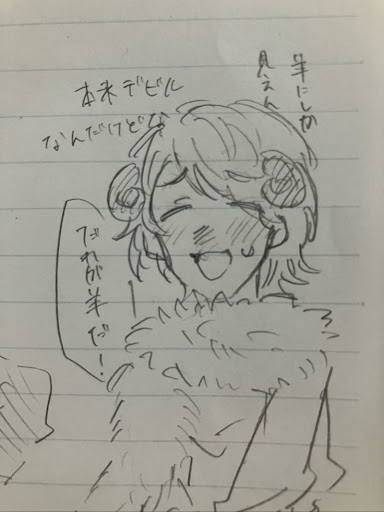 羊にしか
見えん
本来デビル
なんだけどな
だれが羊だ！